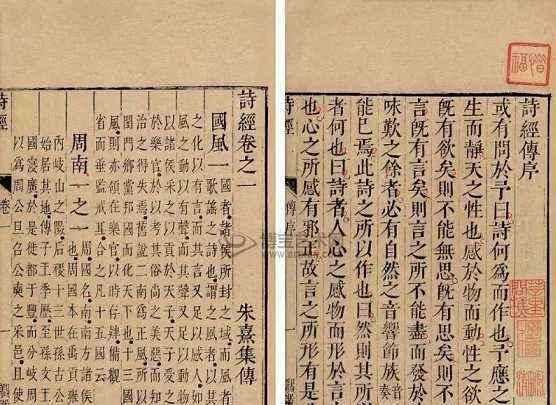 詩經傳序
或有問於予曰詩何爲而作也予應之
生而靜天之性也感於物而動性之欲
旣有欲矣則不能無思旣有思矣則不
言旣有言矣則言之所不能盡而發於
味歎之餘者必有自然之音響節族奏
能已焉此詩之所以作也曰然則其所
者何也曰詩者人心之感物而形於言
也心之所感有邪正故言之所形有是
詩經
傳序
詩經卷之一
朱熹集傳
國風一
國者諸侯所封之域而風者
歌謠之詩也謂之風者以其
之化以有言而其言又足以感人如
風之動以有聲而其聲又足以動物
以諸侯采之以貢於天子天子受之
於樂官於以考其俗尚之美惡而知
治之得失焉舊說二南爲正風所以
閨門鄉黨邦國而化天下也十三國
風則亦領在樂官以時存肄備觀
省而垂監戒耳合之凡十五國云
周南一之一
周國名南南方諸侯
也周國本在禹貢雍
內岐山之陽后稷十三世孫古公
始居其地傳子王季歷至孫文王
國寖廣於是徙都于豐而分岐周
以爲周公旦召公奭之采邑且使
詩經
卷一